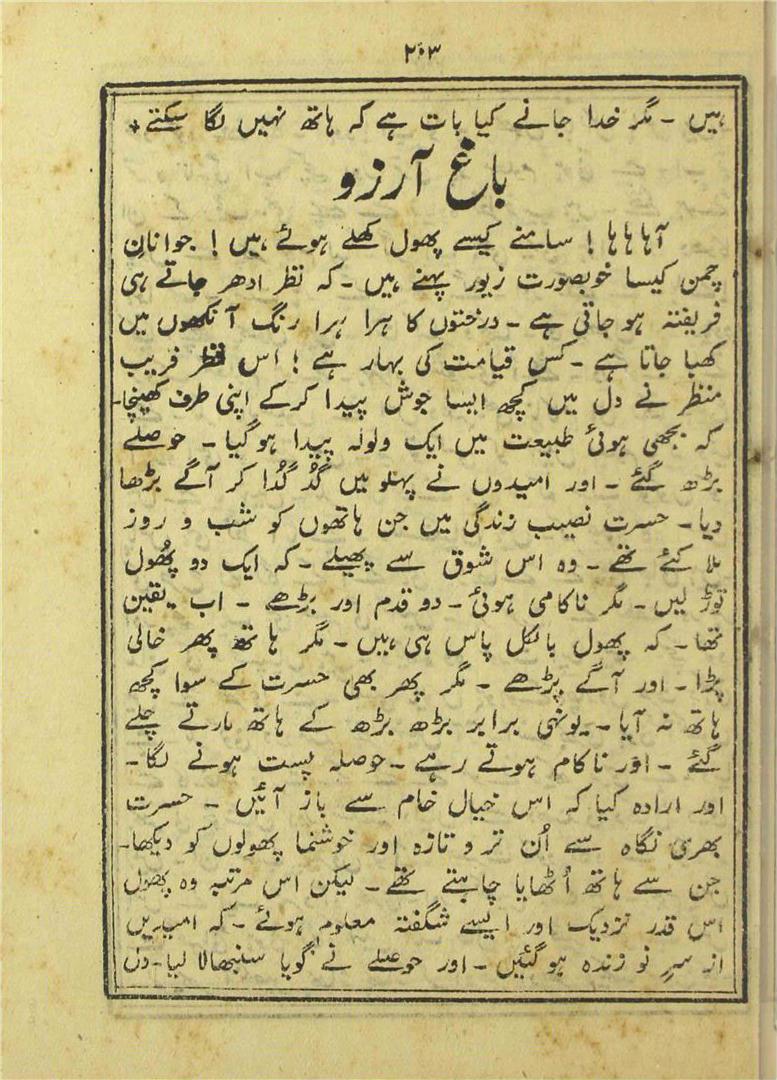 ۲۰۳
ہیں ۔ مگر خدا جانے کیا بات ہے کہ ہاتھ نہیں لگا سکتے ٭
باغ آرزو
آہاہاہا ! سامنے کیسے پھول کھلے ہوئے ہیں ! جوانانِ
چمن کیسا خوبصورت زیور پہنے ہیں ۔ کہ نظر ادھر جاتے ہی
فریفتہ ہو جاتی ہے ۔ درختوں کا ہرا ہرا رنگ آنکھوں میں
کھبا جاتا ہے ۔ کس قیامت کی بہار ہے ! اس نظر فریب
منظر نے دل میں کچھ ایسا جوش پیدا کرکے اپنی طرف کھینچا۔
کہ بجھی ہوئی طبیعت میں ایک ولولہ پیدا ہوگیا ۔ حوصلے
بڑھ گئے ۔ اور امیدوں نے پہلو میں گُدگُدا کر آگے بڑھا
دیا ۔ حسرت نصیب زندگی میں جن ہاتھوں کو شب و روز
ملا کئے تھے ۔ وہ اس شوق سے پھیلے ۔ کہ ایک دو پھُول
توڑ لیں ۔ مگر ناکامی ہوئی ۔ دو قدم اور بڑھے ۔ اب یقین
تھا ۔ کہ پھول بالکل پاس ہی ہیں ۔ مگر ہاتھ پھر خالی
پڑا ۔ اور آگے بڑھے ۔ مگر پھر بھی حسرت کے سوا کچھ
ہاتھ نہ آیا ۔ یونہی برابر بڑھ بڑھ کے ہاتھ مارتے چلے
گئے ۔ اور ناکام ہوتے رہے ۔ حوصلہ پست ہونے لگا ۔
اور ارادہ کیا کہ اس خیال خام سے باز آئیں ۔ حسرت
بھری نگاہ سے اُن تر و تازہ اور خوشنما پھولوں کو دیکھا۔
جن سے ہاتھ اُٹھایا چاہتے تھے ۔ لیکن اس مرتبہ وہ پھول
اس قدر نزدیک اور ایسے شگفتہ معلوم ہوئے ۔ کہ امیدیں
از سرِ نو زندہ ہوگئیں ۔ اور حوصلے نے گویا سنبھالا لیا ۔ دل